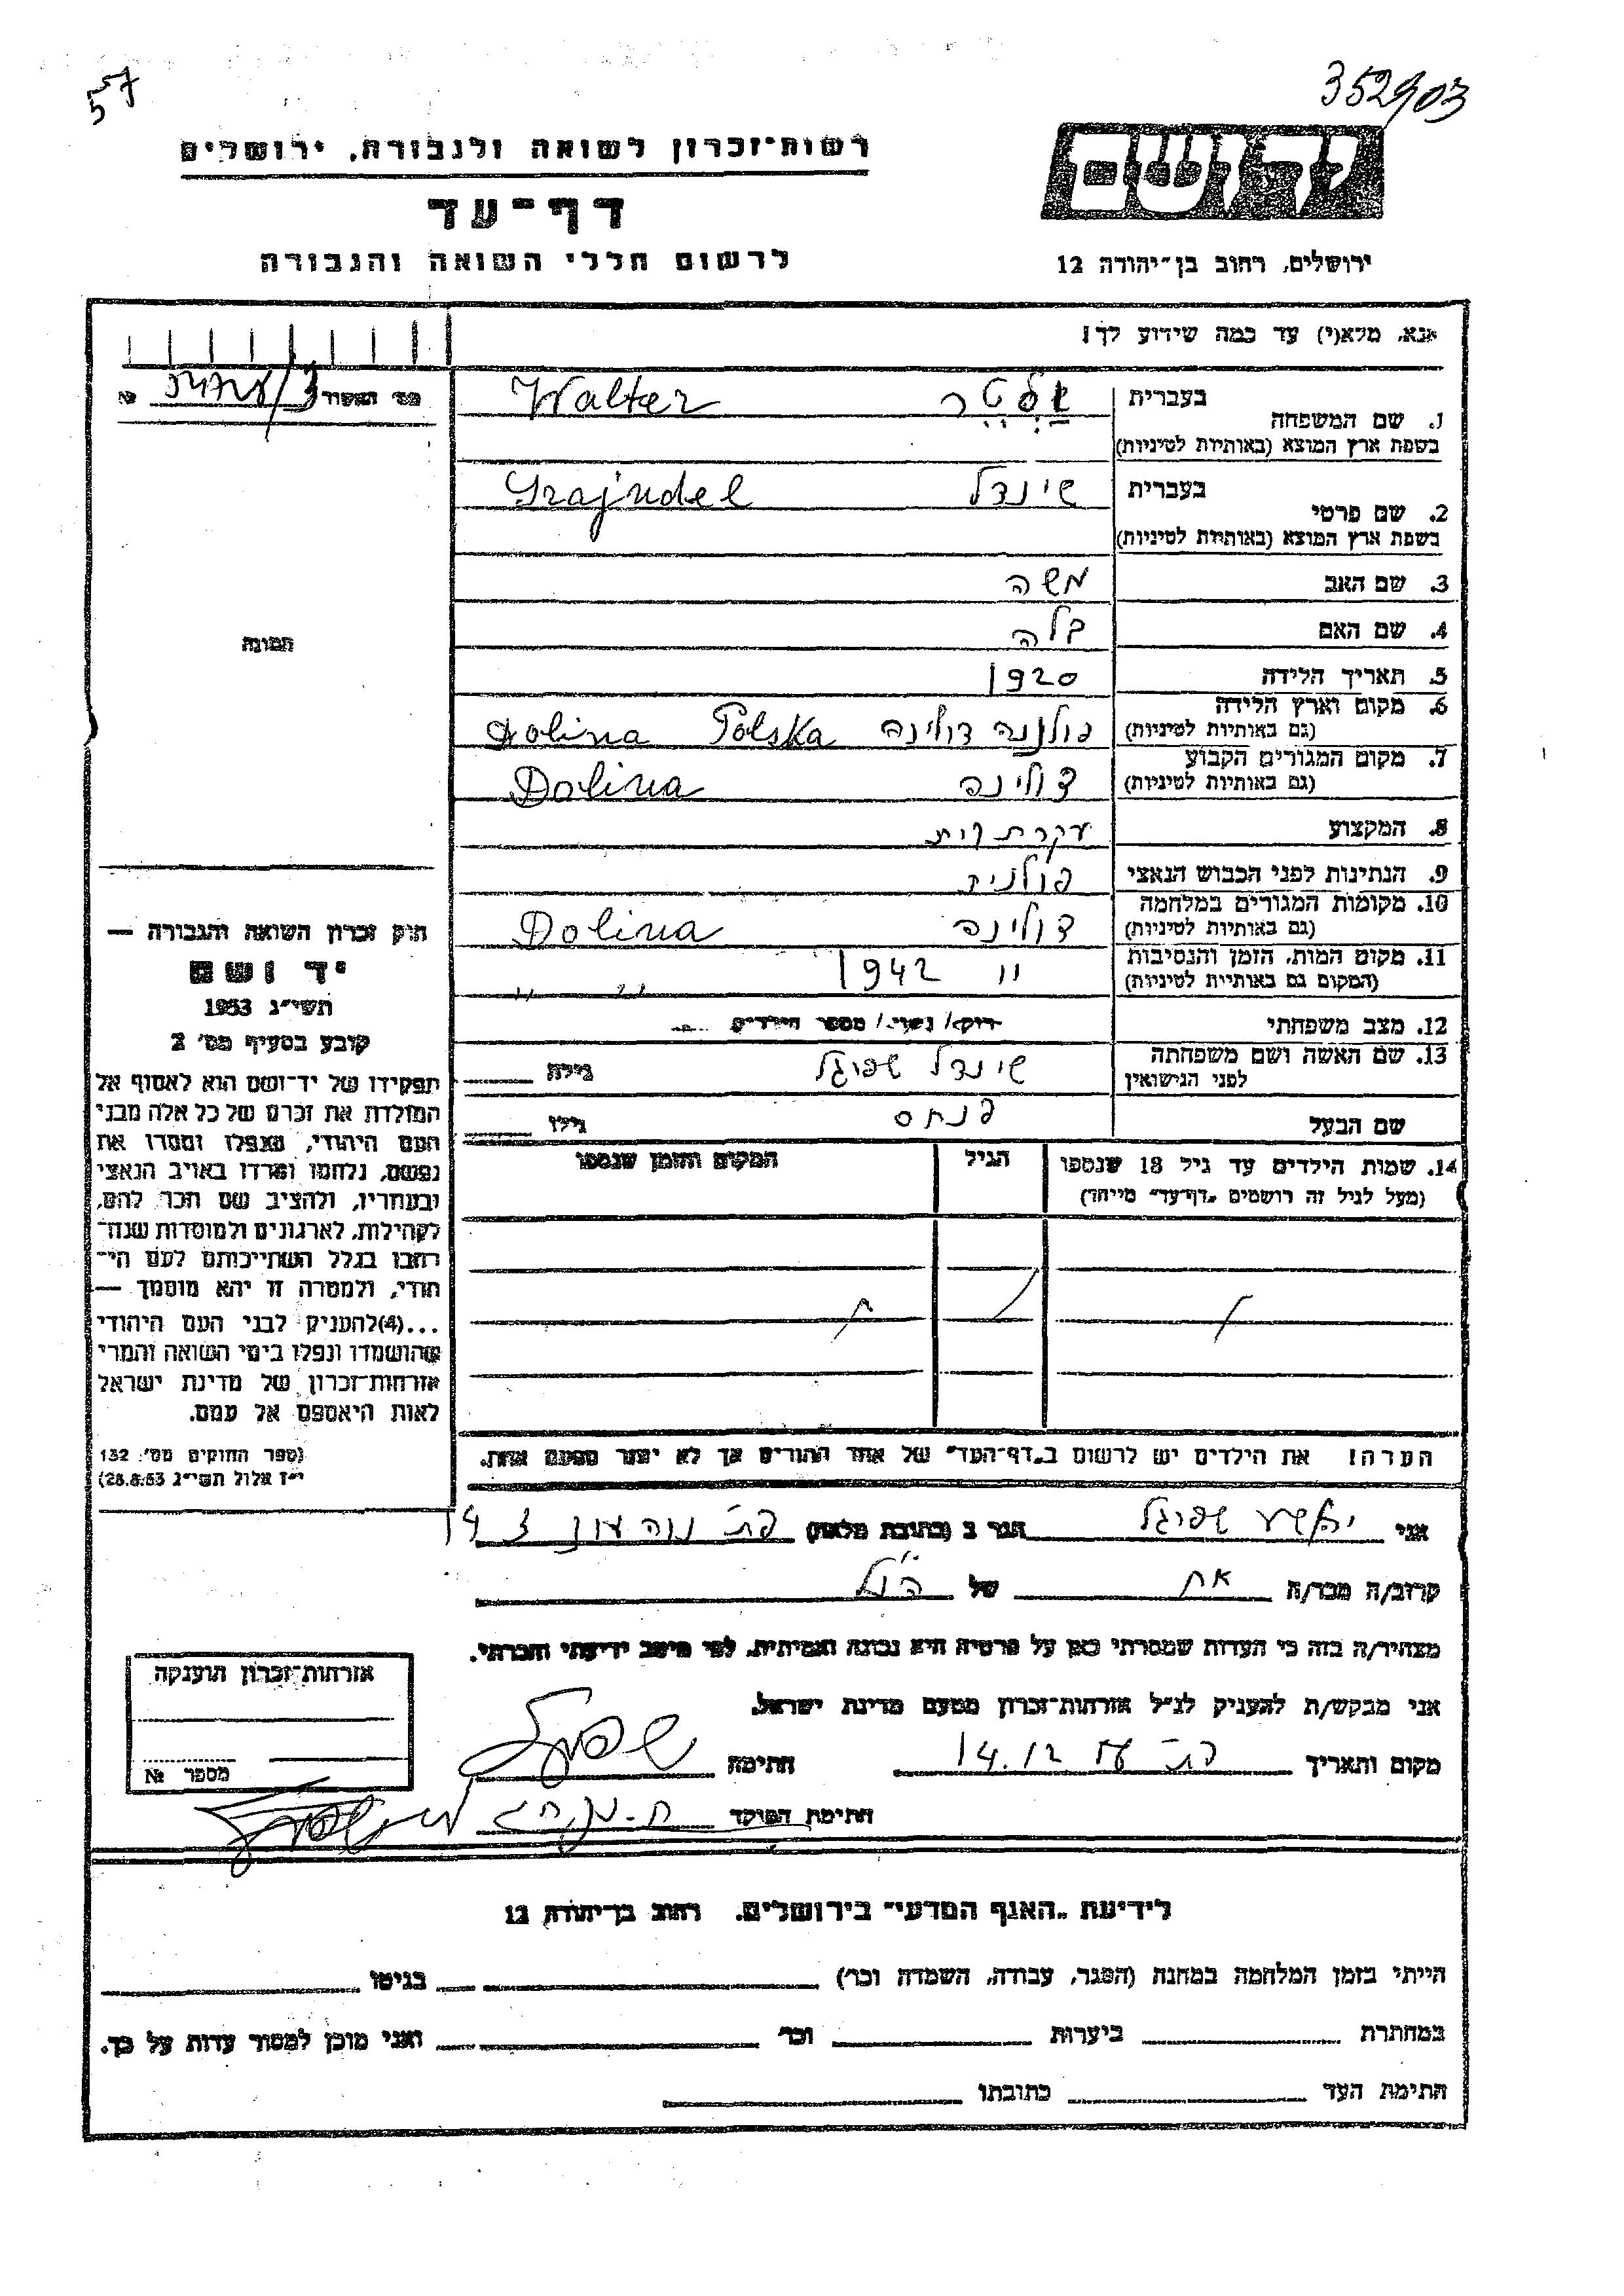 57
352903
רשות־זכרון לשואה ולגבורה, ירושלים
דף־עד
לרשום חללי השואה והגבורה
יד ושם
ירושלים, רחוב בן־יהודה 12
אנא, מלא(י) עד כמה שידוע לך!
מס׳ האסור №
1. שם המשפחה
בעברית
ולטר Walter
בשפת ארץ המוצא (באותיות לטיניות)
2. שם פרטי
בעברית
שינדל Szajndel
בשפת ארץ המוצא (באותיות לטיניות)
3. שם האב משה
4. שם האם בלה
5. תאריך הלידה 1920
6. מקום וארץ הלידה
(גם באותיות לטיניות)
דולינה Polska Dolina
7. מקום המגורים הקבוע
(גם באותיות לטיניות)
דולינה Dolina
8. המקצוע עקרת בית
9. הנתינות לפני הכבוש הנאצי פולנית
10. מקומות המגורים במלחמה
(גם באותיות לטיניות)
דולינה Dolina
11. מקום המות, הזמן והנסיבות
(המקום גם באותיות לטיניות)
" 1942
12. מצב משפחתי רוק/ נשוי/ מספר הילדים
13. שם האשה ושם משפחתה
לפני הנישואין
שינדל שפיגל גילה
שם הבעל פנחס גילו
14. שמות הילדים עד גיל 18 שנספו הגיל המקום והזמן שנספו
(מעל לגיל זה רושמים "דף־עד" מיוחד)
הערה! את הילדים יש לרשום ב"דף־העד" של אחד ההורים אך לא יותר מפעם אחת.
תמונה
חוק זכרון השואה והגבורה —
יד ושם
תשי״ג 1953
קובע בסעיף מס׳ 2
תפקידו של יד־ושם הוא לאסוף אל
המולדת את זכרם של כל אלה מבני
העם היהודי, שנפלו ומסרו את
נפשם, נלחמו ומרדו באויב הנאצי
ובעוזריו, ולהציב שם וזכר להם,
לקהילות, לארגונים ולמוסדות שנח־
רבו בגלל השתייכותם לעם הי־
הודי, ולמטרה זו יהא מוסמך —
...(4)להעניק לבני העם היהודי
שהושמדו ונפלו בימי השואה והמרי
אזרחות־זכרון של מדינת ישראל
לאות היאספם אל עמם.
(ספר החוקים מס׳ 132
י״ז אלול תשי״ג 28.8.53)
אני שפיגל הגר ב (כתובת מלאה)
קרוב/ה מכר/ה של הנ״ל
מצהיר/ה בזה כי העדות שמסרתי כאן על פרטיה היא נכונה ואמיתית, לפי מיטב ידיעתי והכרתי.
אני מבקש/ת להעניק לנ״ל אזרחות־זכרון מטעם מדינת ישראל.
מקום ותאריך 14.12 חתימה
חתימת הפוקד
אזרחות־זכרון הוענקה
מספר №
לידיעת "האגף המדעי" בירושלים, רחוב בן־יהודה 12
הייתי בזמן המלחמה במחנה (הסגר, עבודה, השמדה וכר׳) בגיטו
במחתרת ביערות וכר׳ ואני מוכן למסור עדות על כך.
חתימת העד כתובתו